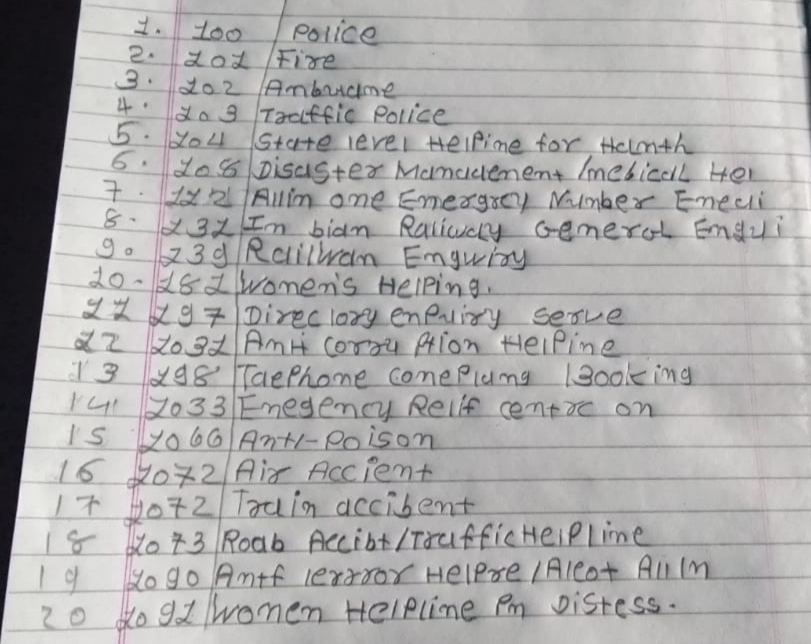 1. 100 Police
2. 101 Fire
3. 102 Ambucme
4. 103 Tadffic Police
5. 104 State level Helpine for Halnth
6. 108 Disaster Mamademen+ /mebicall Hel
7. 112 All in one Emergrcy Number Enecli
8. 131 Im bian Raliwcly General Enqui
9. 139 Railwan Engwiry
10. 181 Women's Helping.
11 197 Direclory enPuiry serve
12 1031 Anti Corru Ption Helpine
13 198 TaePhone conePlumg Booking
14 1033 Enegency Relif centrc on
15 1066 Anti-Poison
16 1072 Air Accient
17 1072 Train accibent
18 1073 Roab Accibt/Traffic HelPlime
19 1090 Antf lerrror Helpre /Aleot All In
20 1091 Wonen HelPline Pn Distess.